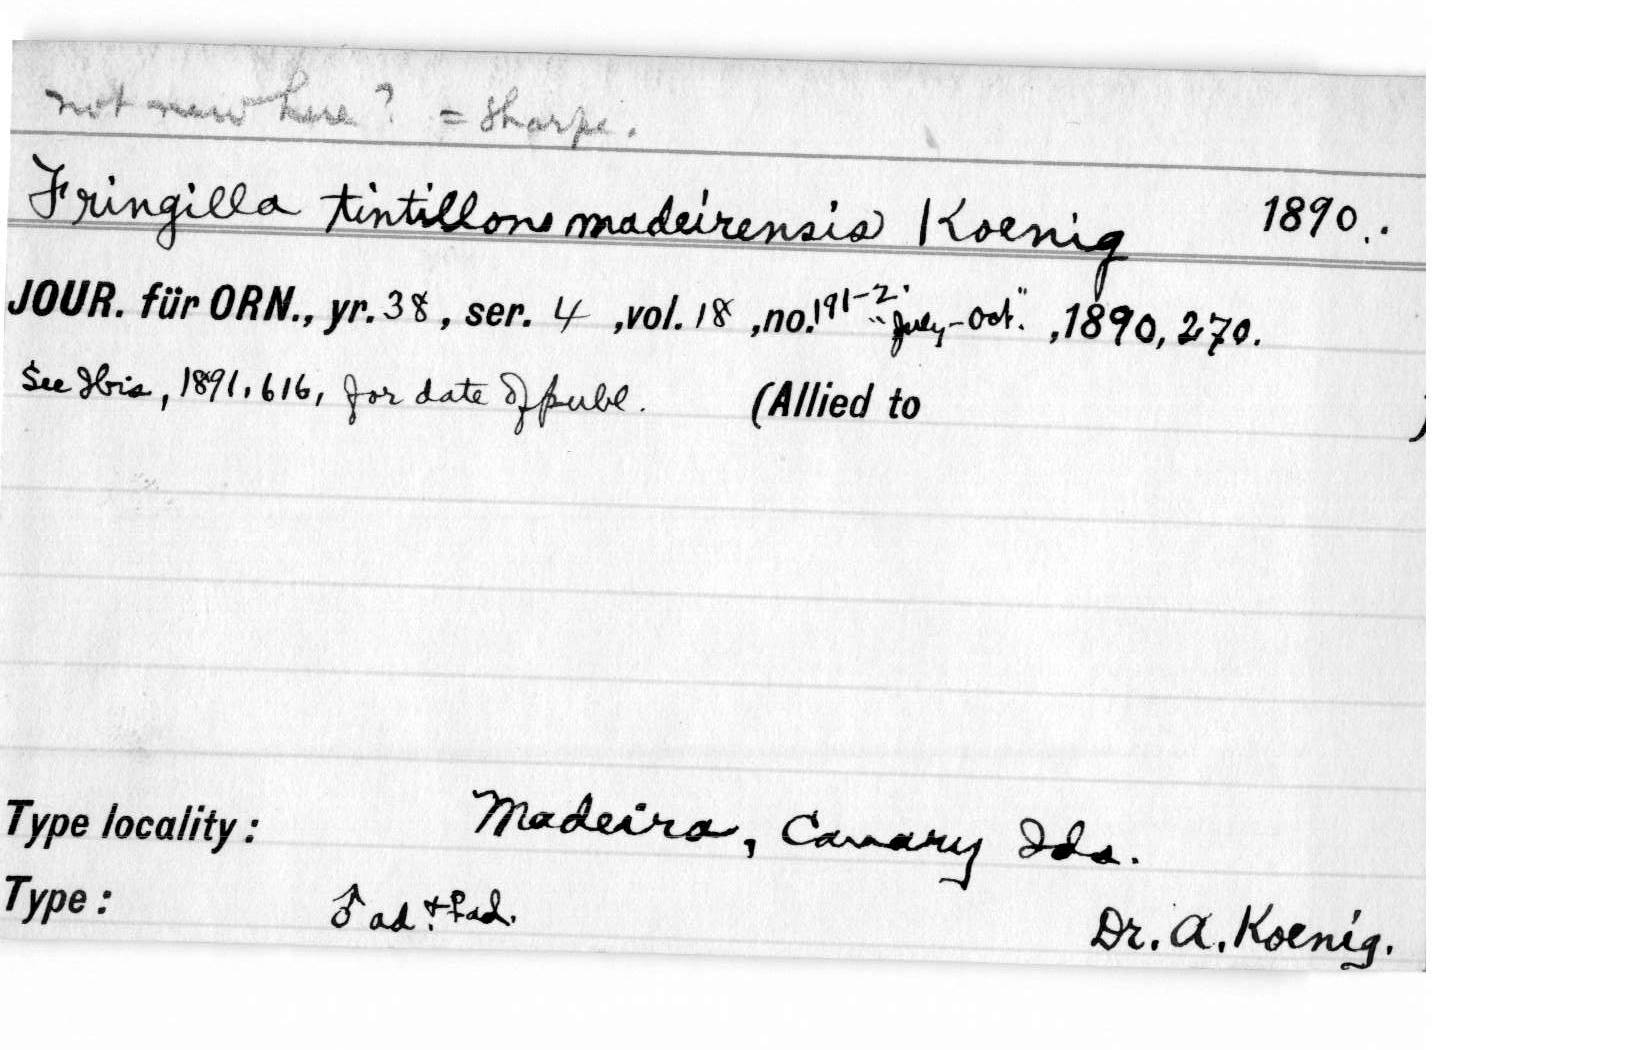 not new here? = Sharpe.
Fringilla tintillons madeirensis Koenig 1890..
JOUR. für ORN., yr. 38, ser. 4 ,vol. 18 ,no. 191-2, "July-Oct." ,1890, 270.
See Ibis, 1891, 616, for date of publ. (Allied to )
Type locality: Madeira, Canary Ids.
Type: ♂ ad. + ♀ ad. Dr. A. Koenig.